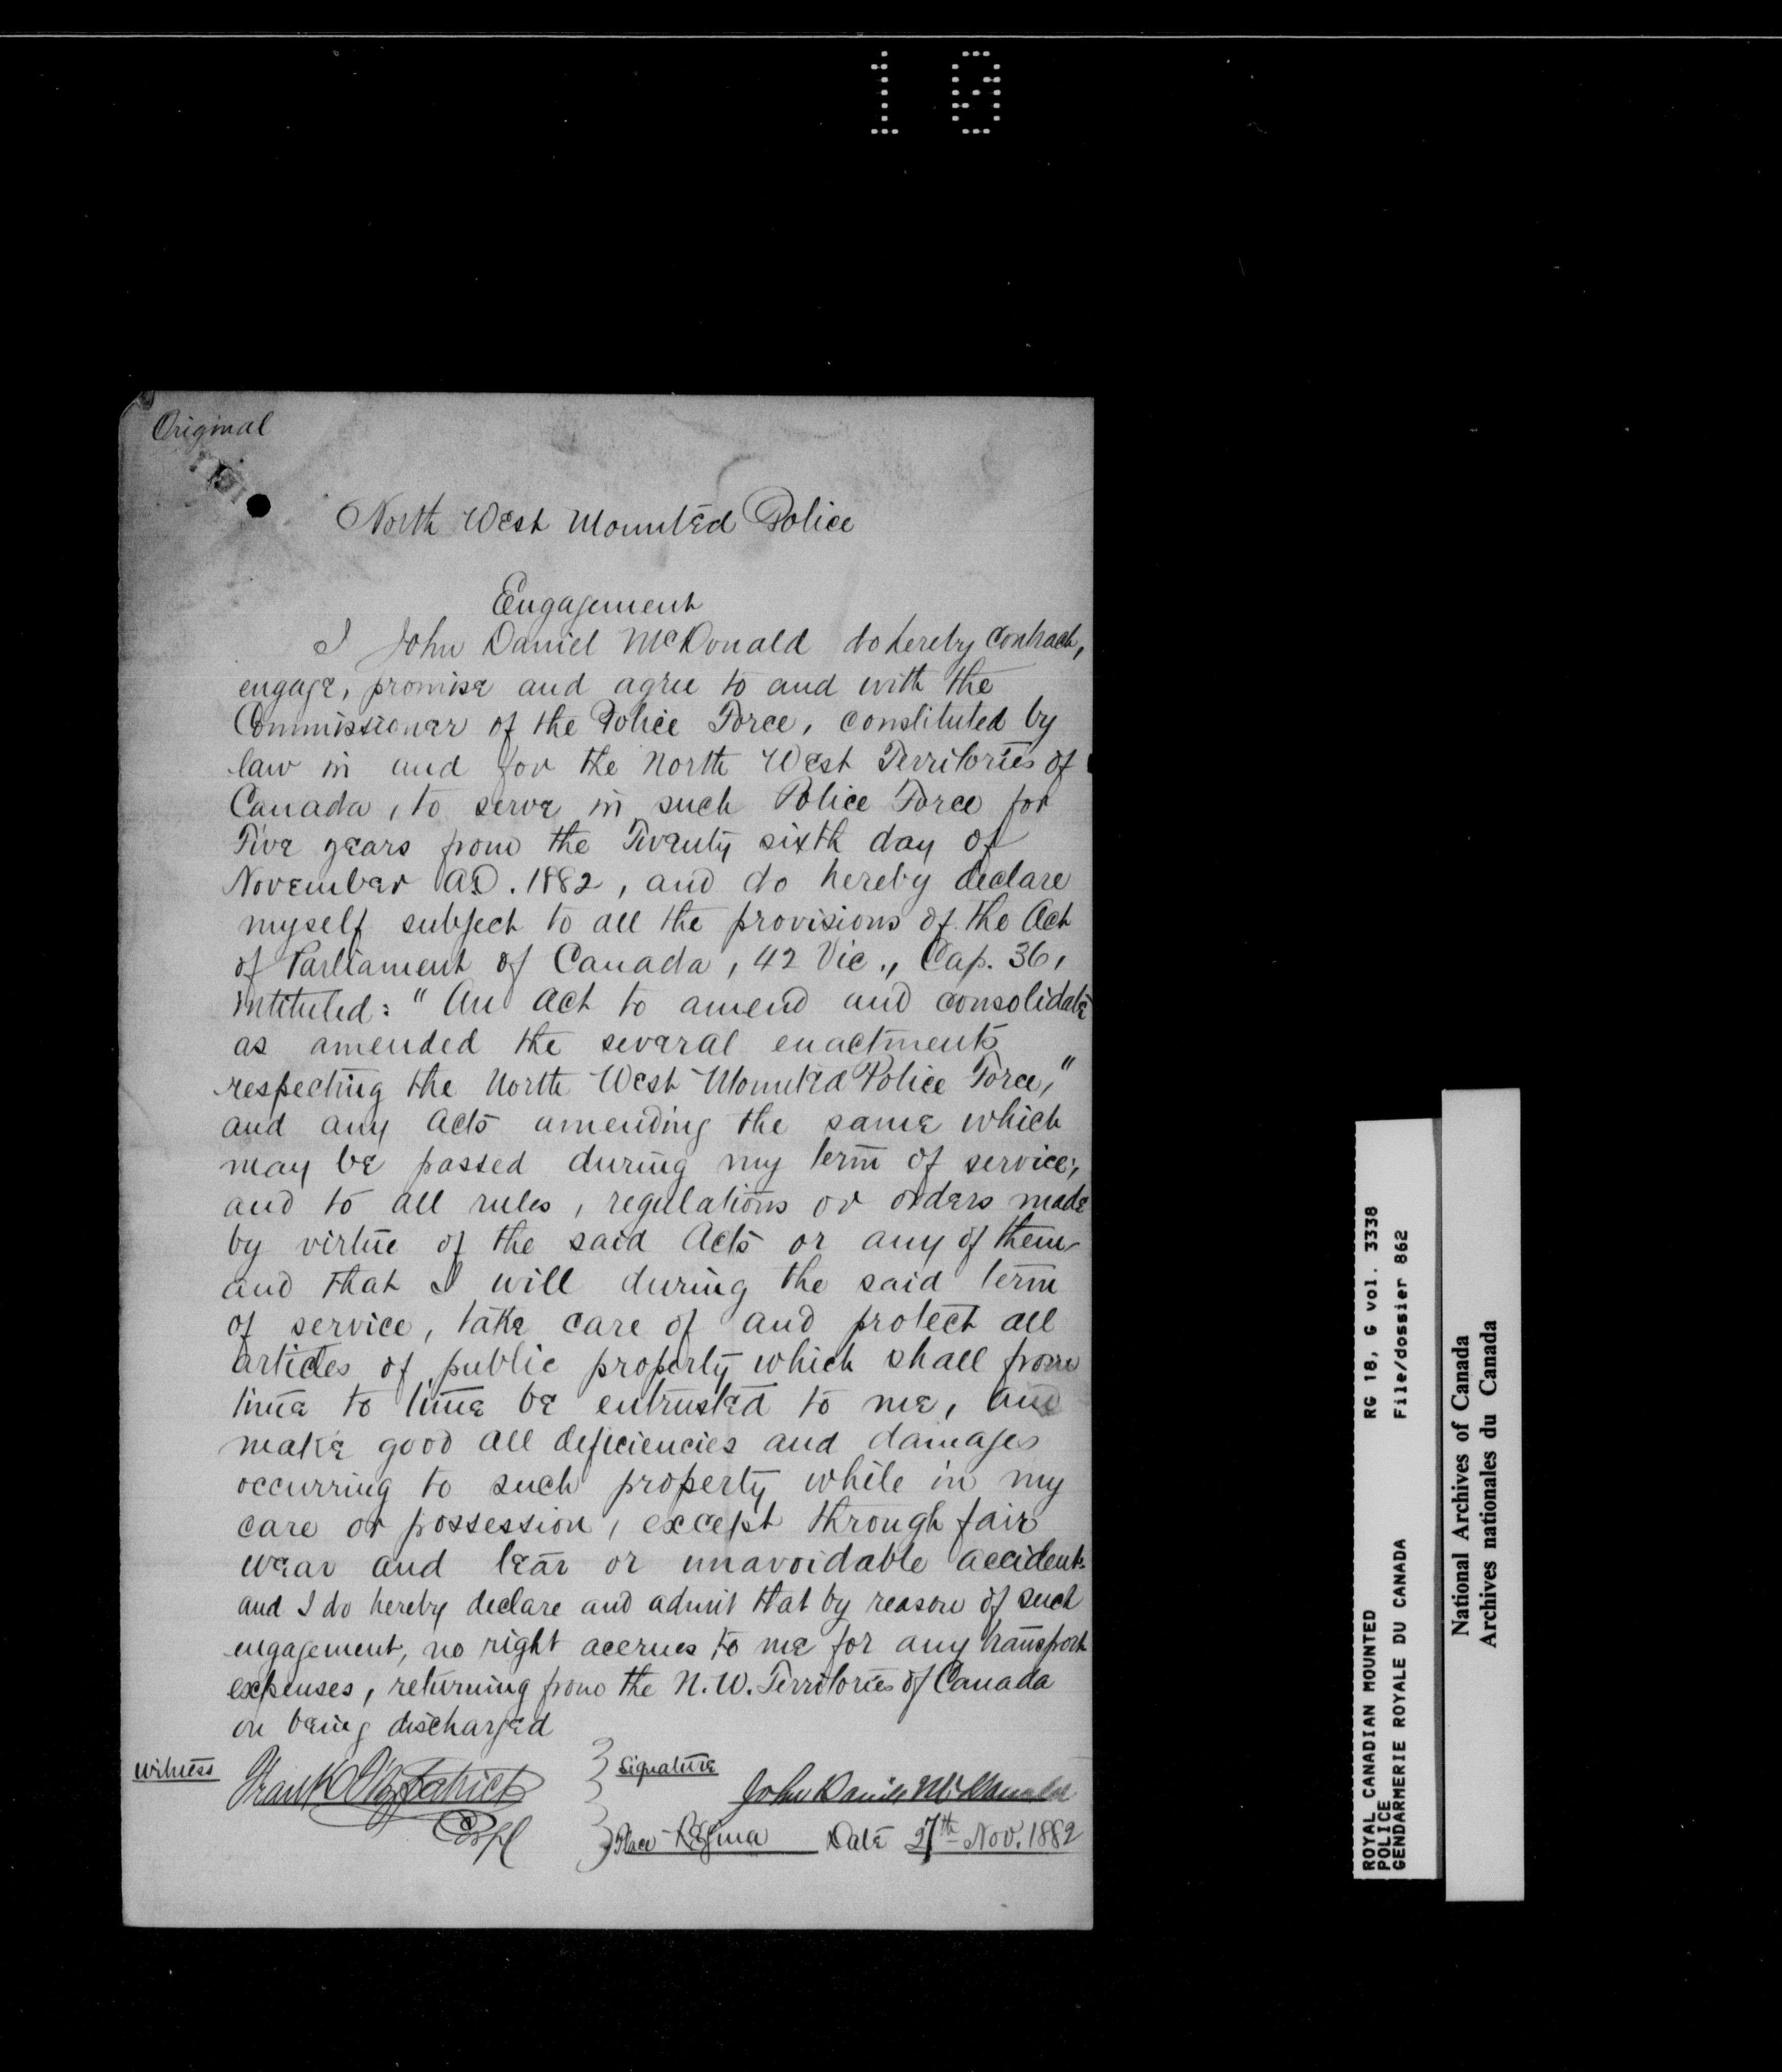 10
Original
North West Mounted Police
Engagement
I John Daniel McDonald do hereby contract,
engage, promise and agree to and with the
Commissioner of the Police Force, constituted by
law in and for the North West Territories of
Canada, to serve in such Police Force for
Five years from the Twenty sixth day of
November A.D. 1882, and do hereby declare
myself subject to all the provisions of the Act
of Parliament of Canada, 42 Vic., Cap. 36,
intituled: "An Act to amend and consolidate
as amended the several enactments
respecting the North West Mounted Police Force,"
and any Acts amending the same which
may be passed during my term of service;
and to all rules, regulations or orders made
by virtue of the said Acts or any of them
and that I will during the said term
of service, take care of and protect all
articles of public property which shall from
time to time be entrusted to me, and
make good all deficiencies and damages
occurring to such property while in my
care or possession, except through fair
wear and tear or unavoidable accident.
and I do hereby declare and admit that by reason of such
engagement, no right accrues to me for any transport
expenses, returning from the N.W. Territories of Canada
on being discharged
Witness Frank Fitzpatrick
Corpl
Signature John Daniel McDonald
Place Regina Date 27th Nov. 1882
ROYAL CANADIAN MOUNTED RG 18, G vol. 3338
POLICE
GENDARMERIE ROYALE DU CANADA File/dossier 862
National Archives of Canada
Archives nationales du Canada